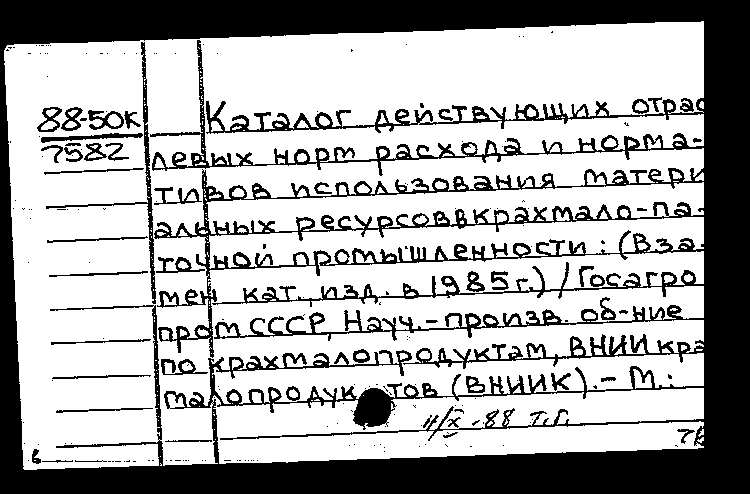 88-50К
7582
Каталог действующих отрас
левых норм расхода и норма-
тивов использования матери
альных ресурсов в крахмало-па-
точной промышленности: (Вза-
мен кат., изд. в 1985 г.) / Госагро
пром СССР, Науч.-произв. об-ние
по крахмалопродуктам, ВНИИ кра
малопродуктов (ВНИИК). - М.:
11/X -88 Т.Г.
6